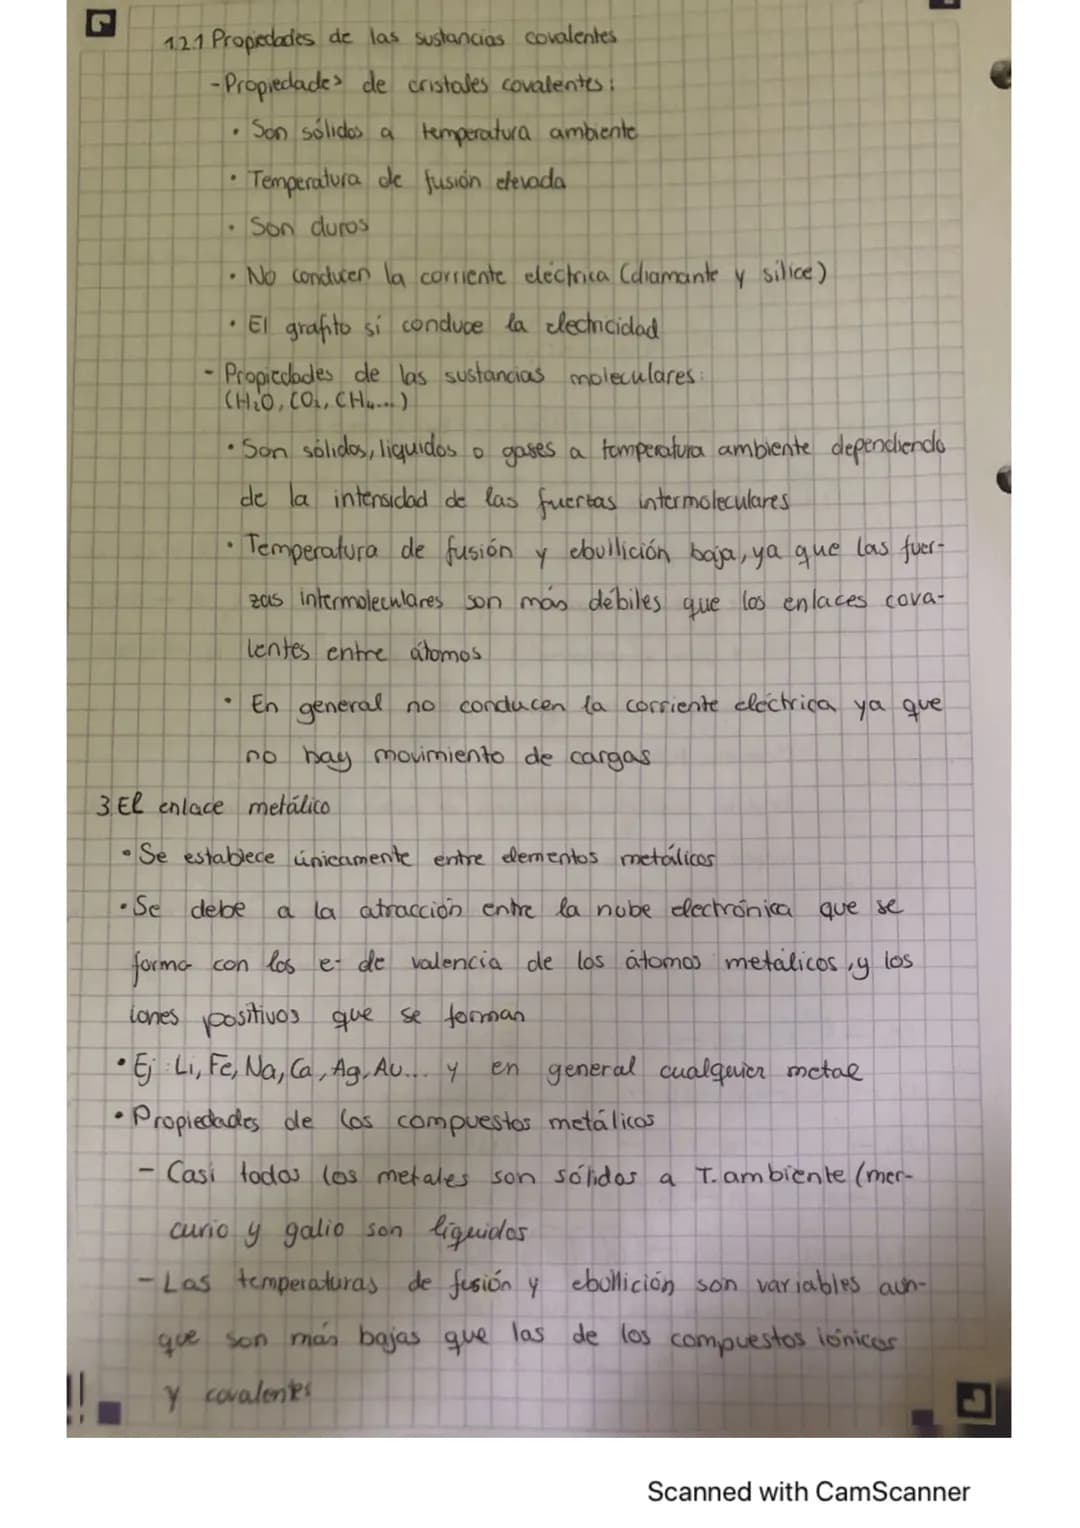 1.2.1 Propiedades de las sustancias covalentes
-Propiedades de cristales covalentes:
• Son sólidos a temperatura ambiente
• Temperatura de fusión elevada
• Son duros
• No conducen la corriente eléctrica (diamante y sílice)
• El grafito sí conduce la electricidad
- Propiedades de las sustancias moleculares:
(H₂O, CO₂, CH₄...)
• Son sólidos, líquidos o gases a temperatura ambiente dependiendo
de la intensidad de las fuertas intermoleculares
• Temperatura de fusión y ebullición baja, ya que las fuer-
zas intermoleculares son más débiles que los enlaces cova-
lentes entre átomos
• En general no conducen la corriente eléctrica ya que
no hay movimiento de cargas
3 El enlace metálico
• Se establece únicamente entre elementos metálicos
• Se debe a la atracción entre la nube electrónica que se
forma con los e- de valencia de los átomos metálicos, y los
iones positivos que se forman
• Ej: Li, Fe, Na, Ca, Ag, Au... y en general cualquier metal
• Propiedades de los compuestos metálicos
- Casi todos los metales son sólidos a T. ambiente (mer-
curio y galio son líquidos
- Las temperaturas de fusión y ebullición son variables aun-
que son más bajas que las de los compuestos iónicos
y covalentes
!!
Scanned with CamScanner